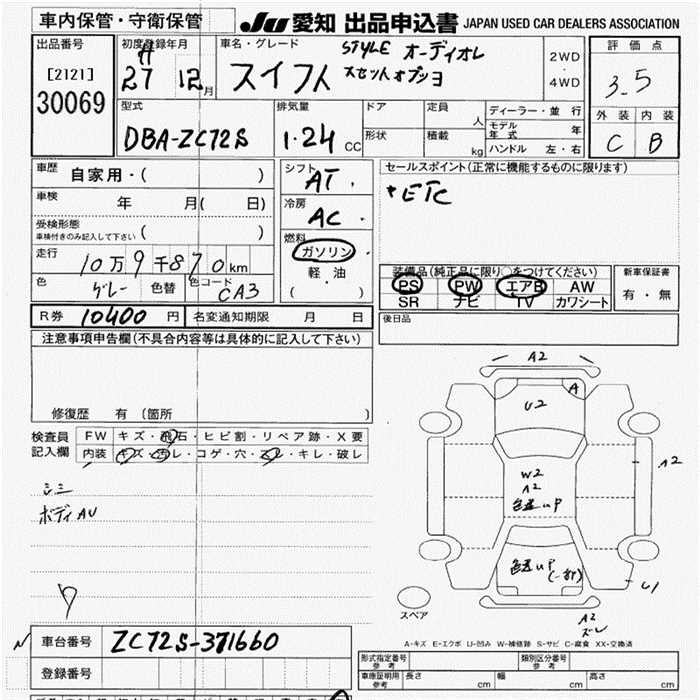 車内保管・守衛保管
JU 愛知 出品申込書 JAPAN USED CAR DEALERS ASSOCIATION
出品番号
[2121]
30069
初度登録年月
H
27 12月
車名・グレード
STYLE オーディオレ
スイフト スセットオプツヨ
2WD
・
4WD
評価点
3.5
外装 内装
C B
型式
DBA-ZC72S
排気量
1.24 CC
ドア
形状
定員
人
積載
kg
ディーラー・並行
モデル年式 年
ハンドル 左・右
車歴
自家用・( )
車検
年 月( 日)
受検形態
車検付きのみ記入して下さい ( )
走行
10万9千870km
色
グレー 色替 色コード CA3
シフト
AT
冷房
AC
燃料
ガソリン
軽・油
( )
セールスポイント(正常に機能するものに限ります)
ETC
装備品(純正品に限り○をつけてください)
PS PW エアB AW
SR ナビ TV カワシート
新車保証書
有・無
R券 10400 円 名変通知期限 月 日
後日品
注意事項申告欄(不具合内容等は具体的に記入して下さい)
修復歴 有 (箇所 )
検査員
記入欄
FW キズ・飛石・ヒビ割・リペア跡・X要
内装 キズ・汚レ・コゲ・穴・スレ・キレ・破レ
シミ
ボディAU
A2
A
U2
W2
A2
色違いP
A2
色違いP
(一部)
U1
スペア
A2
ズレ
A-キズ E-エクボ U-凹み W-補修跡 S-サビ C-腐食 XX-交換済
車台番号 ZC72S-371660
登録番号
形式指定番号
参考
類別区分番号
参考
車庫証明用
参考
長さ cm 幅 cm 高さ cm